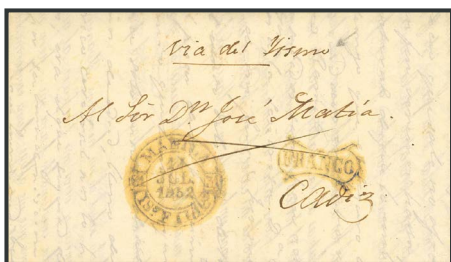 Via del Ysmo
Al Sór Dn José Matia.
MANILA
JUL
1852
FRANCO
Cadiz